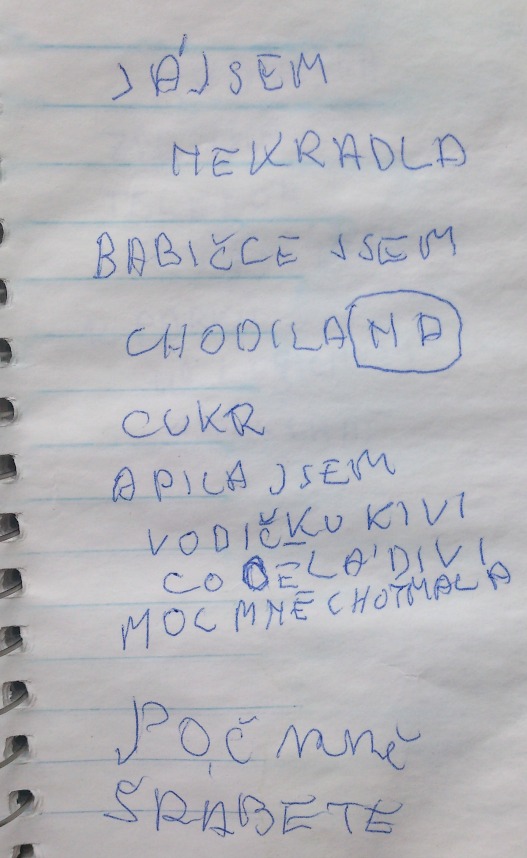 JÁ JSEM
NEKRADLA
BABIČCE JSEM
CHODILA NA
CUKR
A PILA JSEM
VODIČKU KIVI
CO DĚLÁ DIVI
MOC MNĚ CHOTMALA
POČ mně
ŠRABETE